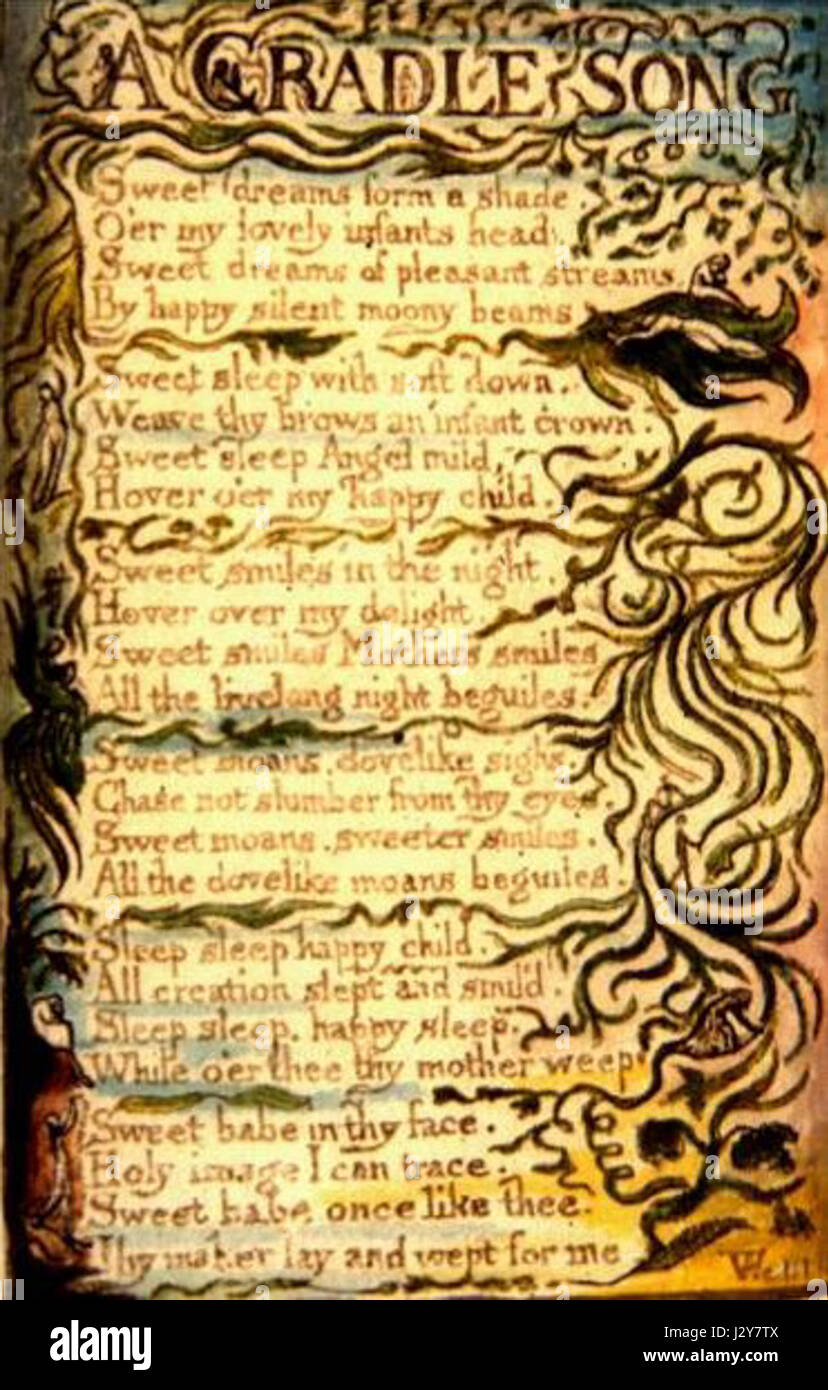 A CRADLE SONG
Sweet dreams form a shade.
O'er my lovely infants head.
Sweet dreams of pleasant streams.
By happy silent moony beams
Sweet sleep with soft down.
Weave thy brows an infant crown.
Sweet sleep Angel mild,
Hover o'er my happy child.
Sweet smiles in the night.
Hover over my delight.
Sweet smiles Mothers smiles
All the livelong night beguiles.
Sweet moans, dovelike sighs,
Chase not slumber from thy eyes.
Sweet moans, sweeter smiles.
All the dovelike moans beguiles.
Sleep sleep happy child.
All creation slept and smil'd.
Sleep sleep, happy sleep,
While o'er thee thy mother weep
Sweet babe in thy face.
Holy image I can trace.
Sweet babe once like thee.
Thy maker lay and wept for me
alamy
Image ID: J2Y7TX
www.alamy.com